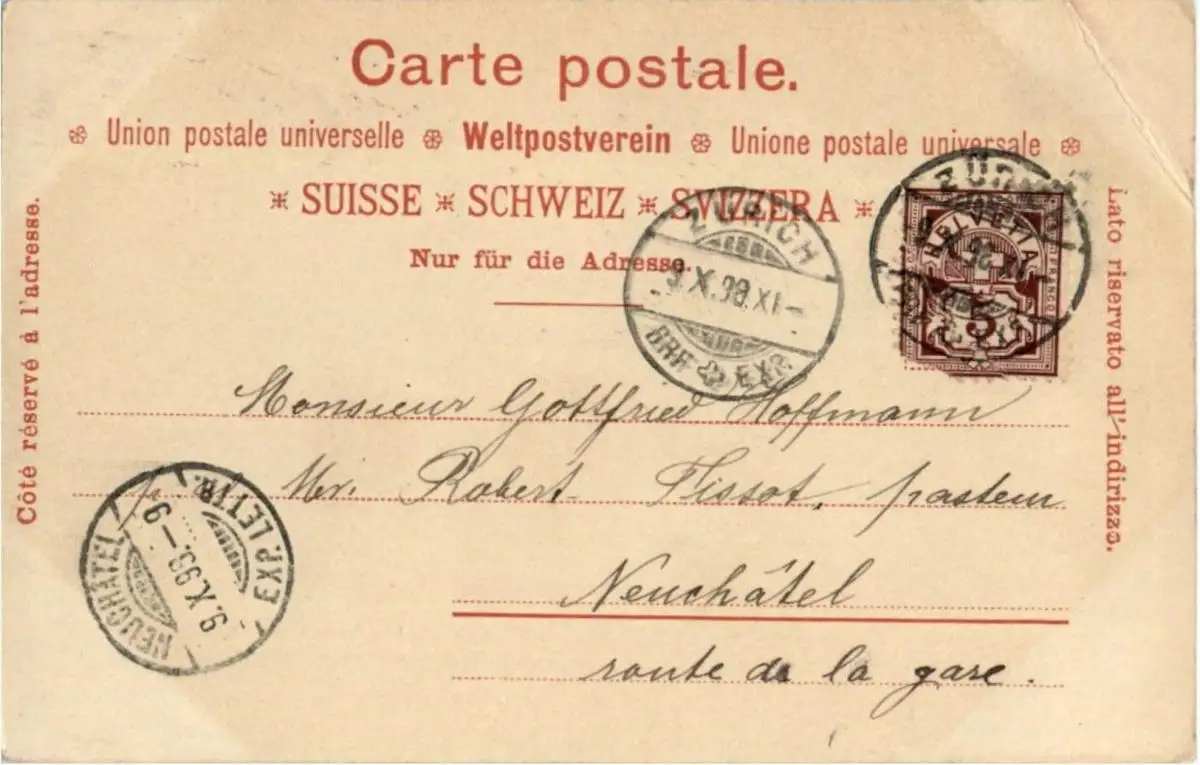 Carte postale.
Union postale universelle Weltpostverein Unione postale universale
SUISSE * SCHWEIZ * SVIZZERA *
Nur für die Adresse.
Côté réservé à l'adresse.
Lato riservato all'indirizzo.
ZÜRICH
X.98.XI–
BRF. EXP.
ZÜRICH
HELVETIA
FRANCO
5
Monsieur Gottfried Hoffmann
Mr. Robert-Tissot, pasteur
Neuchâtel
route de la gare.
NEUCHÂTEL
9.X.98.–9
EXP. LETTR.